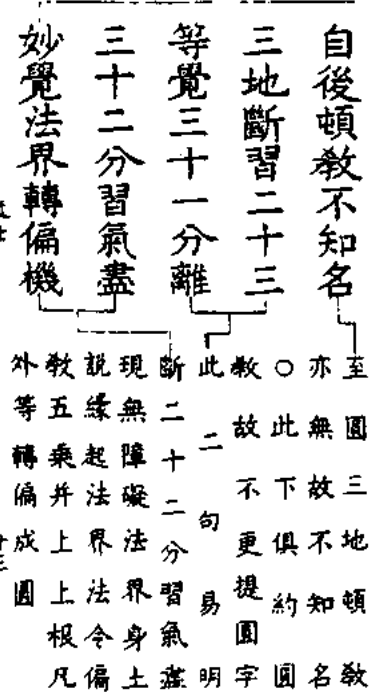 自後頓教不知名
三地斷習二十三
等覺三十一分離
三十二分習氣盡
妙覺法界轉偏機
至圓三地頓教
亦無故不知名
○此下俱約圓
教故不更提圓字
此二句易明
斷二十二分習氣盡
現無障礙法界身土
說緣起法界法令偏
教五乘并上上根凡
外等轉偏成圓